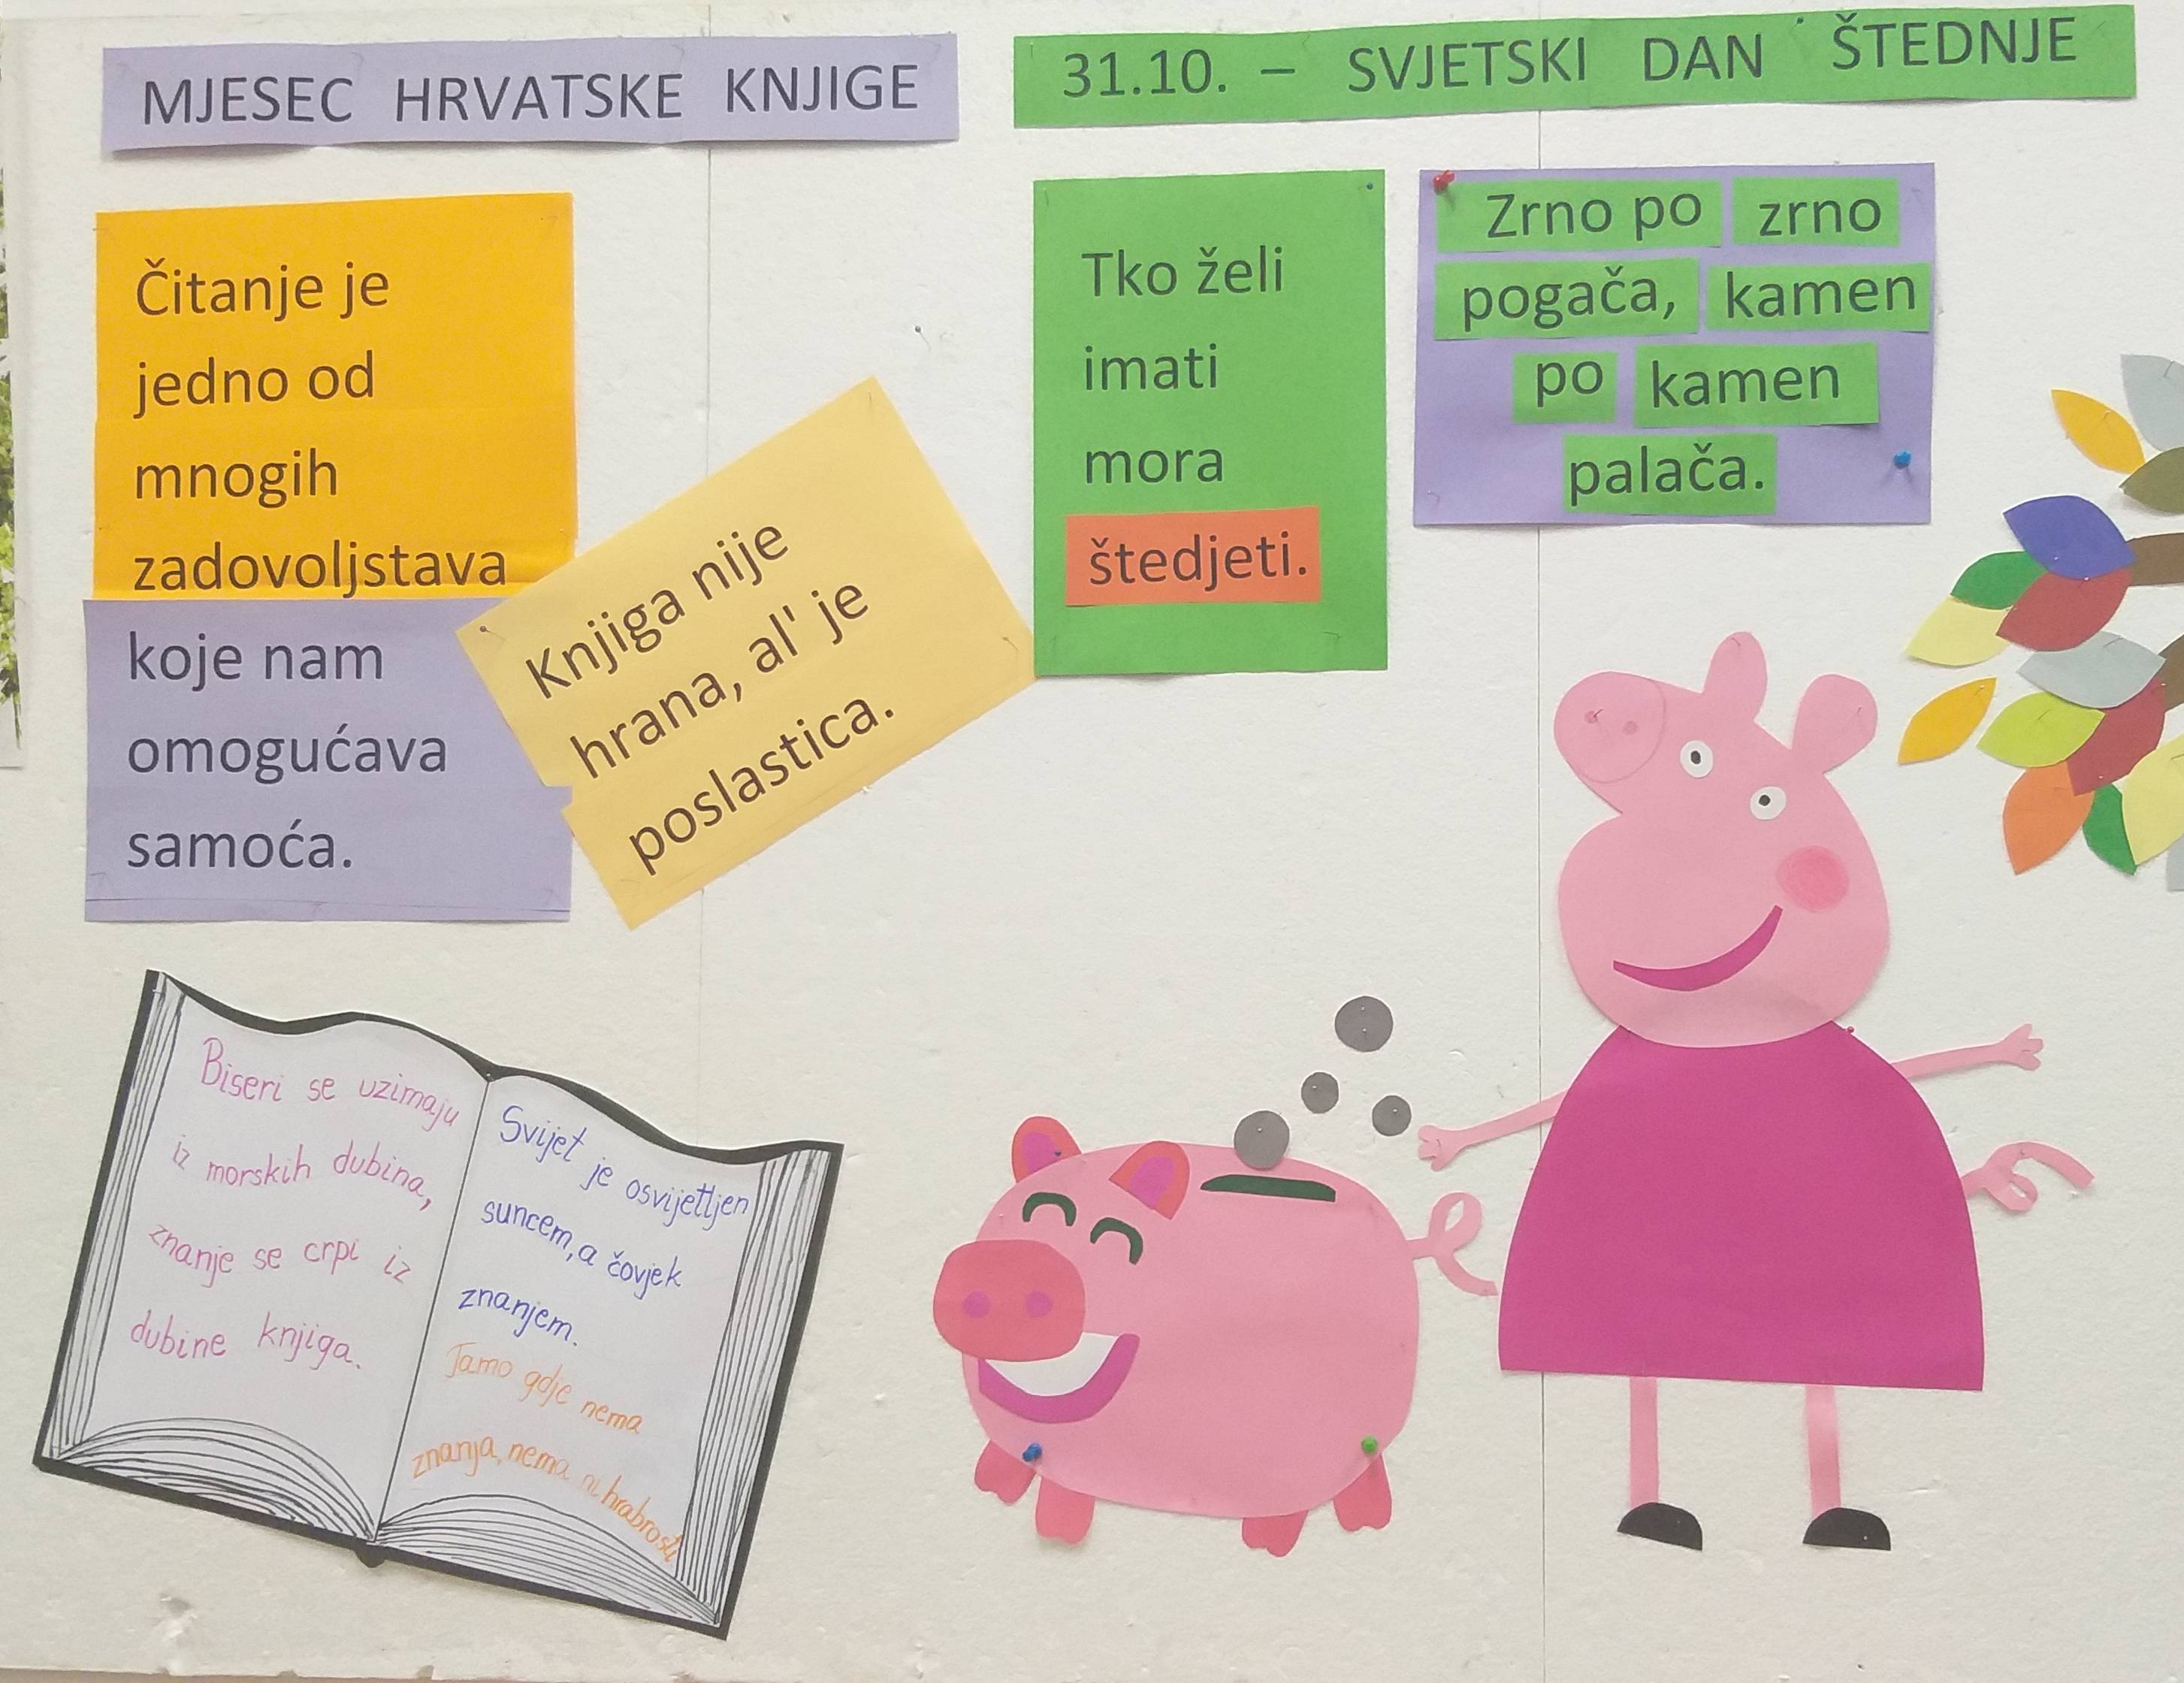 MJESEC HRVATSKE KNJIGE
Čitanje je
jedno od
mnogih
zadovoljstava
koje nam
omogućava
samoća.
Knjiga nije
hrana, al' je
poslastica.
Biseri se uzimaju
iz morskih dubina,
znanje se crpi iz
dubine knjiga.
Svijet je osvijetljen
suncem, a čovjek
znanjem.
Tamo gdje nema
znanja, nema ni hrabrosti
31.10. – SVJETSKI DAN ŠTEDNJE
Tko želi
imati
mora
štedjeti.
Zrno po zrno
pogača, kamen
po kamen
palača.